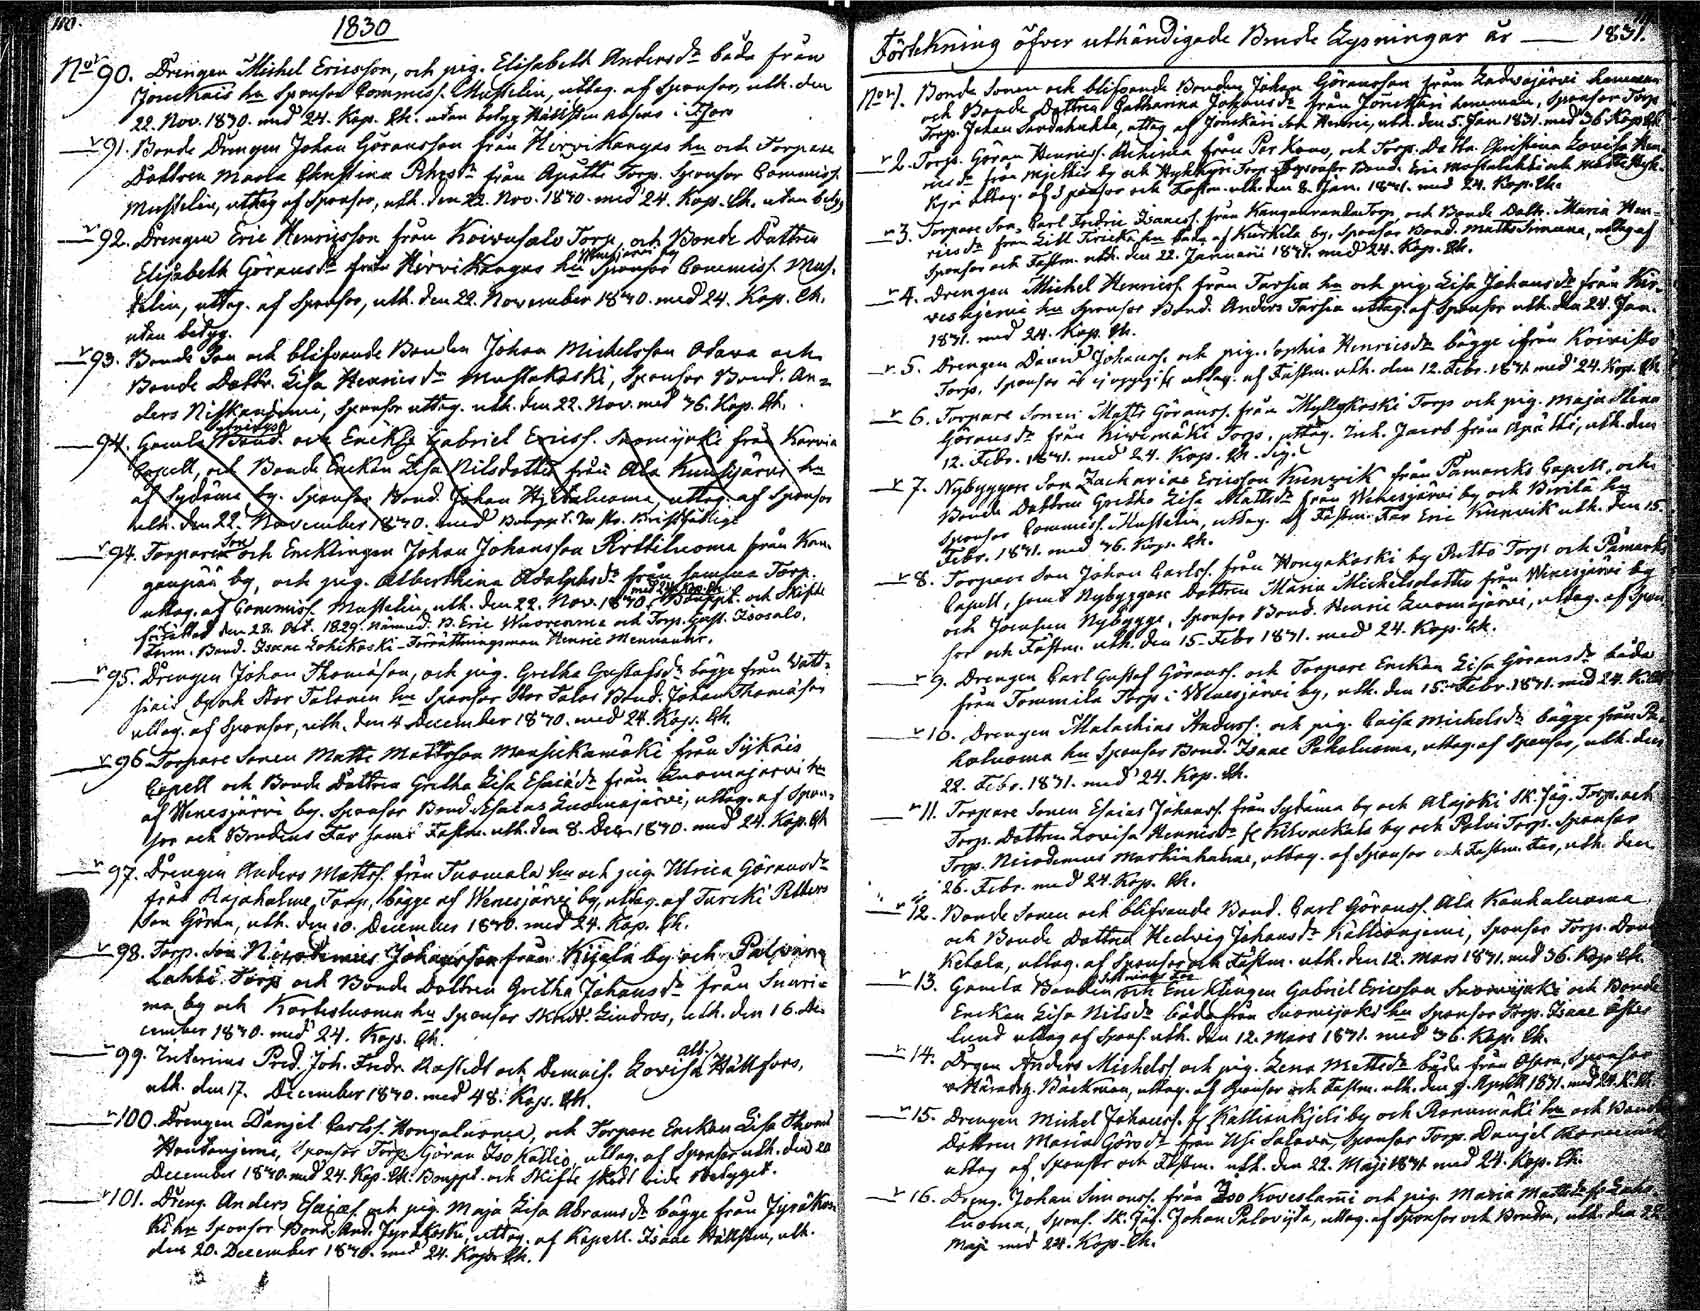 110.
1830
No 90. Drengen Michel Ericsson, och pig. Elisabeth Andersdr båda från
Jouckais hn Sponsor Commiss. Musselin, uttag. af Sponsor, uth. den
22. Nov. 1830. med 24. Kop. Ch. utan betyg Hällsten absens i
91. Bonde Drengen Johan Göransson från Hirvikangas hn och Torpare
Dottren Maria Christina Pehrsdr från Apätti Torp. Sponsor Commiss.
Musselin, uttag af Sponsor, uth. den 22. Nov. 1830. med 24. Kop. Ch. utan betyg
92. Drengen Eric Henricsson från Koivusalo Torp, och Bonde Dottren
Elisabeth Göransdr från Hirvikangas hn Sponsor Commiss. Mus-
selin, uttag. af Sponsor, uth. den 22. November 1830. med 24. Kop. Ch.
utan betyg.
93. Bonde Son och blifvande Bonden Johan Michelsson Otava och
Bonde Dottr. Lisa Henricsdr Mustakoski, Sponsor Bond. An-
ders Niskaniemi, Sponsor uttag. uth. den 22. Nov. med 36. Kop. Ch.
94. Gamla Bond. och Enkl. Gabriel Ericss. Suomijoki från Karvia
Capell, och Bonde Enckan Lisa Nilsdotter från Ala Kuuhijärvi hn
af Sydäma by. Sponsor Bond. Johan Hietaluoma, uttag af Sponsor
uth. den 22. November 1830. med
94. Torpare Son och Encklingen Johan Johansson Perttiluoma från Kan-
ganpää by, och pig. Albertina Adolphsdr från samma Torp.
uttag. af Commiss. Musselin, uth. den 22. Nov. 1830. med 24. Kop. Ch. Bouppt. och Skifte
författad den 28. Oct. 1829. Nämnd. B. Eric Wuorenma och Torp. Gust. Isosalo.
Form. Bond. Isaac Lohikoski - Förrättningsman Henric Mennander.
95. Drengen Johan Thomasson, och pig. Gretha Gustafsdr bägge från Vatt-
by och Stor Talonen hn Sponsor Stor Talas Bond. Johan Thomasson
uttag. af Sponsor, uth. den 4 December 1830. med 24. Kop. Ch.
96 Torpare Sonen Matts Mattsson Mansikamäki från Sijkais
Capell och Bonde Dottren Gretha Lisa Esaiædr från Luomajärvi hn
af Wenesjärvi by. Sponsor Bond. Esaias Luomajärvi, uttag. af Spon-
sor och Brudens Far samt Fästm. uth. den 8. Decr. 1830. med 24. Kop. Ch
97. Drengen Anders Mattss. från Tuomala hn och pig. Ulrica Göransdr
från Rajahalme Torp, bägge af Wenesjärvi by, uttag. af Turcki Petters
Son Göran, uth. den 10. December 1830. med 24. Kop. Ch.
98. Torp. Son Nicodemus Johansson från Kijala by och Palvian
Lahti Torp och Bonde Dottren Gretha Johansdr från Suuri-
ma by och Kortesluoma hn Sponsor Skrädd. Lindros, uth. den 16. De-
cember 1830. med 24. Kop. Ch.
99. Interims Pred. Joh. Fredr. Rostedt och Demois. Lovisa Alb. Hällfors,
uth. den 17. December 1830. med 48. Kop. Ch.
100. Drengen Danjel Carlss. Hongaluoma, och Torpare Enckan Lisa Thomædr
Hautaniemi, Sponsor Torp. Göran Iso Kallio, uttag. af Sponsor uth. den 20
December 1830. med 24. Kop. Ch. Bouppt. och Skifte skedt vide betyget.
101. Dreng. Anders Esaiæs. och pig. Maja Lisa Abramsdr bägge från Jyräkos-
ki hn Sponsor Bond. And. Jyräkoski, uttag. af Kapell. Isaac Hällsten, uth.
den 20. December 1830. med 24. Kop. Ch.
Förtekning öfver uthändigade Brude Lysningar år — 1831.
No 1. Bonde Sonen och blifvande Bonden Johan Göransson från hemman
och Bonde Dottren Catharina Johansdr från Jonckäri hemman, Sponsor Torp
Torp. Johan uttag af Jonckäri Son Henric, uth. den 5. Jan. 1831. med 36 Kop. Ch.
2. Torp. Göran Henricss. från och Torp. Dotter Christina Lovisa Hen-
ricsdr från by och Torp
uttag. af Sponsor och Fästm. uth. den 8. Jan. 1831. med 24. Kop. Ch.
3. Torpare Son, Carl Fredric Isaacss. från Kanganranda Torp, och Bonde Dottr. Maria Hen-
ricsdr från Lill hn båda af Kurkela by, Sponsor Bond. Matts uttag af
Sponsor och Fästm. uth. den 22. Januarii 1831. med 24. Kop. Ch.
4. Drengen Michel Henricss. från Tarsia hn och pig. Lisa Johansdr från
hn Sponsor Bond. Anders Tarsia uttag. af Sponsor uth. den 24. Jan.
1831. med 24. Kop. Ch.
5. Drengen David Johanss. och pig. Sophia Henricsdr bägge ifrån Koivisto
Torp, Sponsor är ej uppgift uttag. af Fästm. uth. den 12. Febr. 1831. med 24. Kop. Ch
6. Torpare Sonen Matts Göranss. från Myllykoski Torp och pig. Maja Stina
Göransdr från Kivimäki Torp, uttag. Ink. Jacob från Apätti, uth. den
12. Febr. 1831. med 24. Kop. Ch.
7. Nybyggare Son Zacharias Ericsson Kuuvik från Påmarcks Capell, och
Bonde Dottren Gretha Lisa Mattsdr från Wenesjärvi by och Birilä hn
Sponsor Commiss. Musselin, uttag. af Fästm. Far Eric Kuuvik uth. den 15.
Febr. 1831. med 36. Kop. Ch.
8. Torpare Son Johan Carlss. från Hongakoski by Ratto Torp och Påmarks
Capell, samt Nybyggare Dottren Maria Michelsdotter från Wenesjärvi by
och Nybygge, Sponsor Bond. Henric Luomajärvi, uttag. af Spon-
sor och Fästm. uth. den 15. Febr 1831. med 24. Kop. Ch.
9. Drengen Carl Gustaf Göranss. och Torpare Enckan Lisa Göransdr båda
från Tommila Torp i Wenesjärvi by, uth. den 15. Febr. 1831. med 24. K. Ch
10. Drengen Malachias Anderss. och pig. Caisa Michelsdr bägge från Pa-
haluoma hn Sponsor Bond. Isaac Pahaluoma, uttag. af Sponsor, uth. den
22. Febr. 1831. med 24. Kop. Ch.
11. Torpare Sonen Esaias Johanss. från Sydäma by och Alajoki Sk. Jäg. Torp. och
Torp. Dottren Lovisa Henricsdr fr by och Palvi Torp. Sponsor
Torp. Nicodemus uttag. af Sponsor och Fästm. Far, uth. den
26. Febr. med 24. Kop. Ch.
12. Bonde Sonen och blifvande Bond. Carl Göranss. Ala Kauhaluoma
och Bonde Dottren Hedvig Johansdr Kallioniemi, Sponsor Torp. David
Ketola, uttag. af Sponsor och Fästm. uth. den 12. Mars 1831. med 36. Kop. Ch.
13. Gamla Bonden och Encklingen Gabriel Ericsson Suomijoki och Bonde
Enckan Lisa Nilsdr båda från Suomijoki hn Sponsor Torp. Isaac Öster-
lund uttag af Spons. uth. den 12. Mars 1831. med 36. Kop. Ch.
14. Drgen Anders Michelss. och pig. Lena Mattsdr båda från Sponsor
Backman, uttag. af Sponsor och Fästm. uth. den April 1831. med 24. K. Ch.
15. Drengen Michel Johanss. fr Kallionkjeli by och Ronnmäki hn och Bonde
Dottren Maria Görsdr från Usi Salava, Sponsor Torp. Danjel
uttag af Sponsor och Fästm. uth. den 22. Maji 1831 med 24. Kop. Ch.
16. Dreng. Johan Simonss. från Iso Koveslami och pig. Maria Mattsdr fr
luoma, Spons. Sk. Jäg. Johan Palovijta, uttag. af Sponsor och Bruden, uth. den 22
Maji med 24. Kop. Ch.